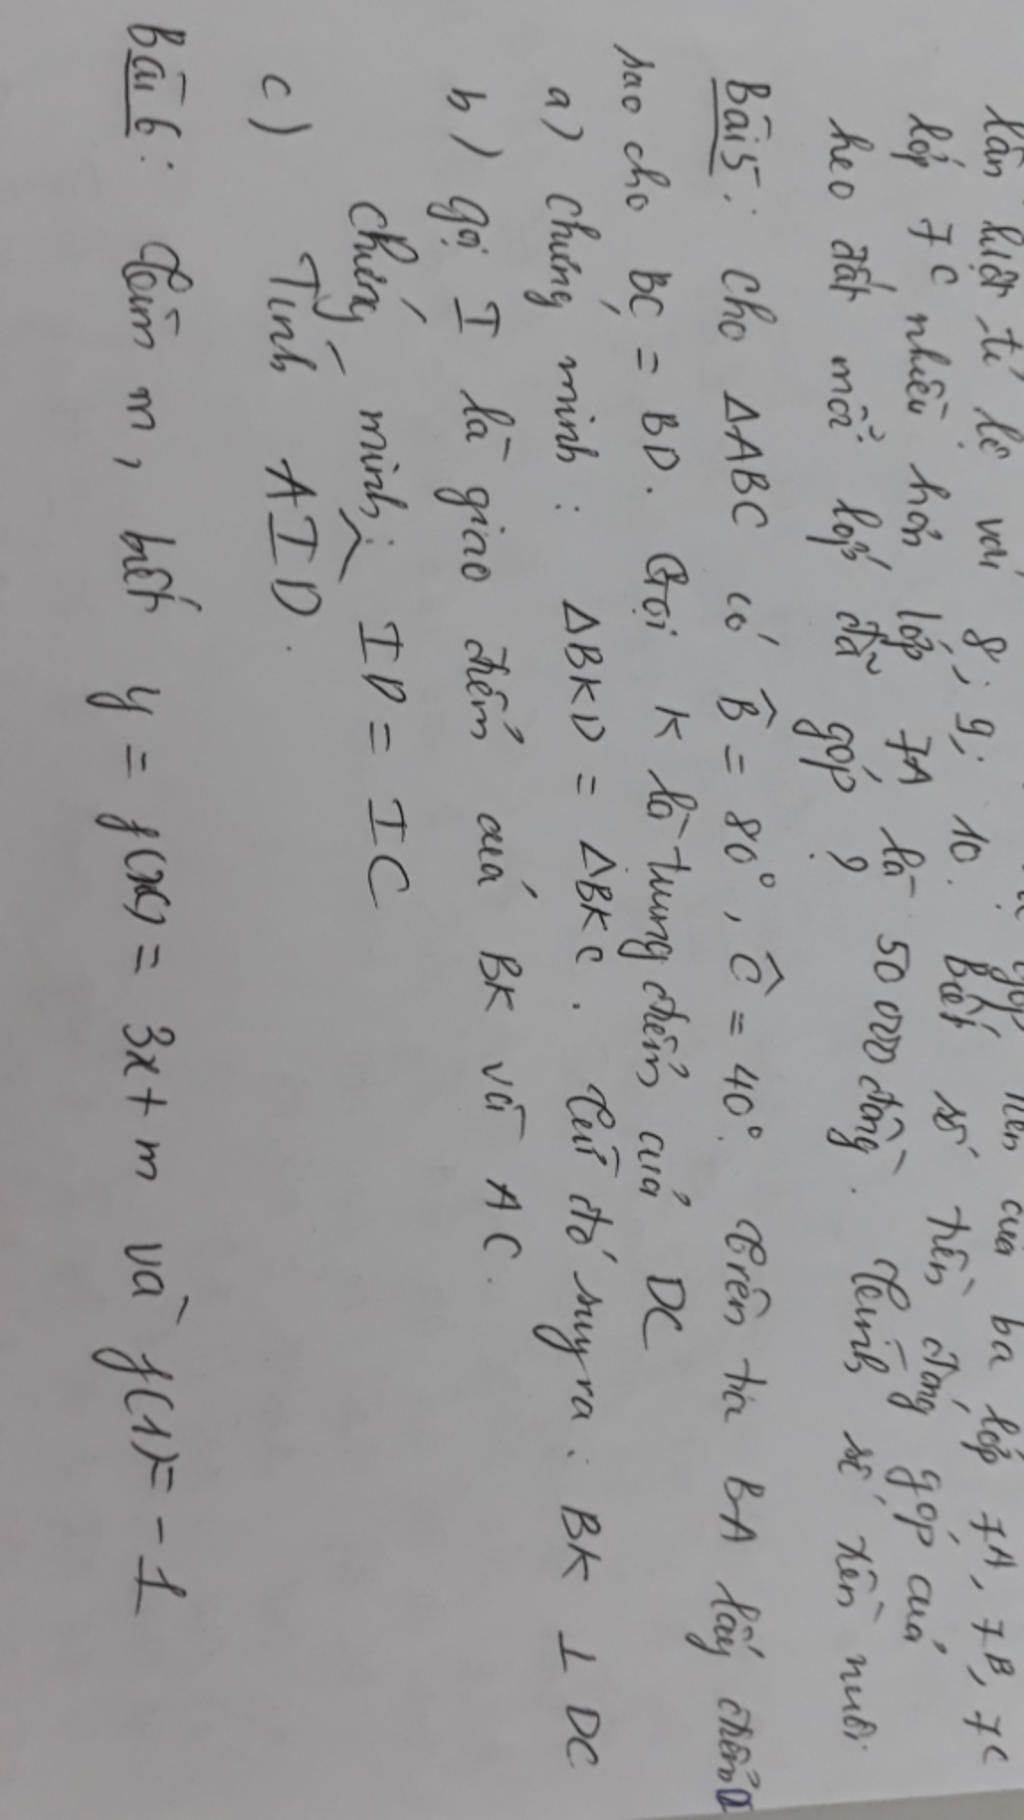 góp tiền của ba lớp 7A, 7B, 7C
lần lượt tỉ lệ với 8; 9; 10. Biết số tiền đóng góp của
lớp 7C nhiều hơn lớp 7A là 50 000 đồng. Tính số tiền nuôi
heo đất mỗi lớp đã góp ?
Bài 5: Cho ΔABC có B̂ = 80°, Ĉ = 40°. Trên tia BA lấy điểm D
sao cho BC = BD. Gọi K là trung điểm của DC
a) Chứng minh: ΔBKD = ΔBKC. Từ đó suy ra: BK ⊥ DC
b) Gọi I là giao điểm của BK và AC.
Chứng minh: ID = IC
c) Tính AÎD.
Bài 6: Tìm m, biết y = f(x) = 3x + m và f(1) = -1